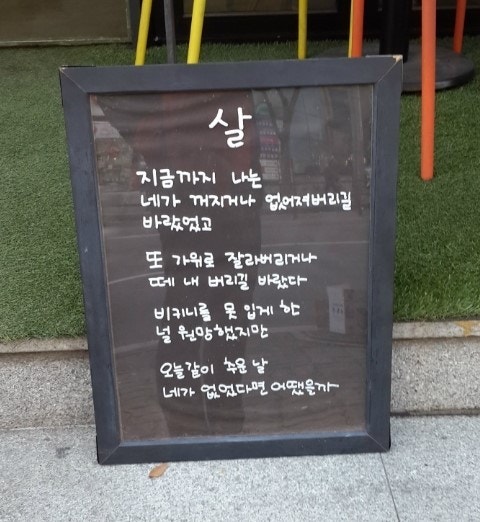 살
지금까지 나는
네가 꺼지거나 없어져버리길
바랐었고
또 가위로 잘라버리거나
떼 내 버리길 바랐다
비키니를 못 입게 한
널 원망했지만
오늘같이 추운 날
네가 없었다면 어땠을까